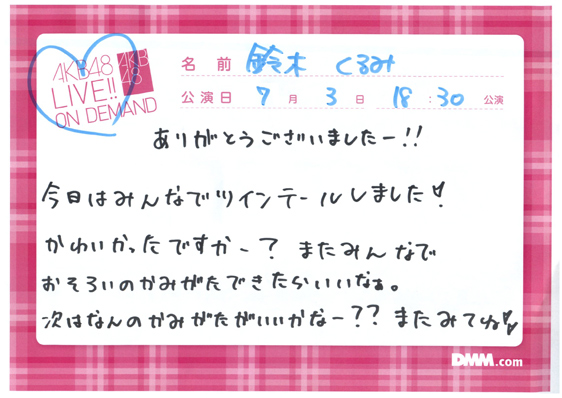 AKB48
LIVE!!
ON DEMAND
AKB
48
名前 鈴木 くるみ
公演日 7月 3日 18:30 公演
ありがとうございましたー!!
今日はみんなでツインテールしました♡!
かわいかったですかー? またみんなで
おそろいのかみがたできたらいいなぁ。
次はなんのかみがたがいいかなー?? またみてね♡♡
DMM.com